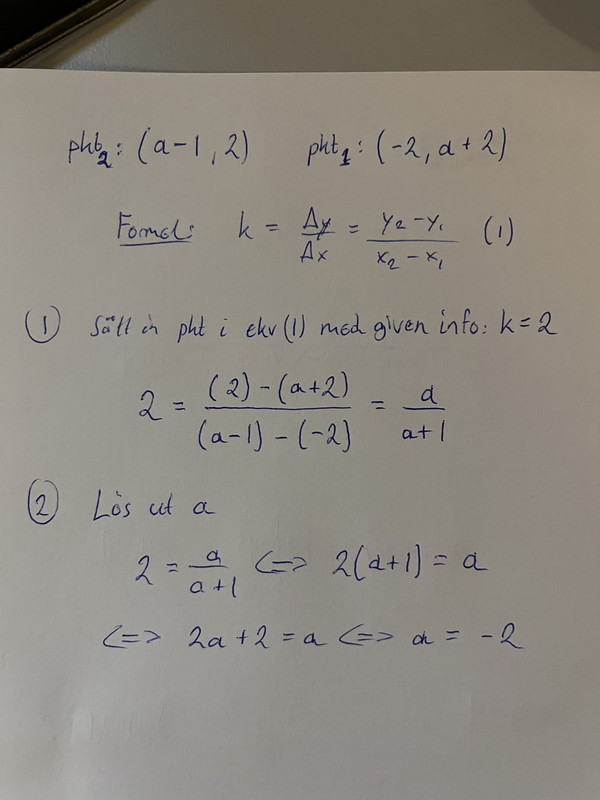 pkt₂: (a-1, 2) pkt₁: (-2, a+2)
Formel: k = Δy/Δx = (y₂-y₁)/(x₂-x₁) (1)
① Sätt in pkt i ekv (1) med given info: k=2
2 = ((2)-(a+2))/((a-1)-(-2)) = a/(a+1)
② Lös ut a
2 = a/(a+1) <=> 2(a+1) = a
<=> 2a+2 = a <=> a = -2